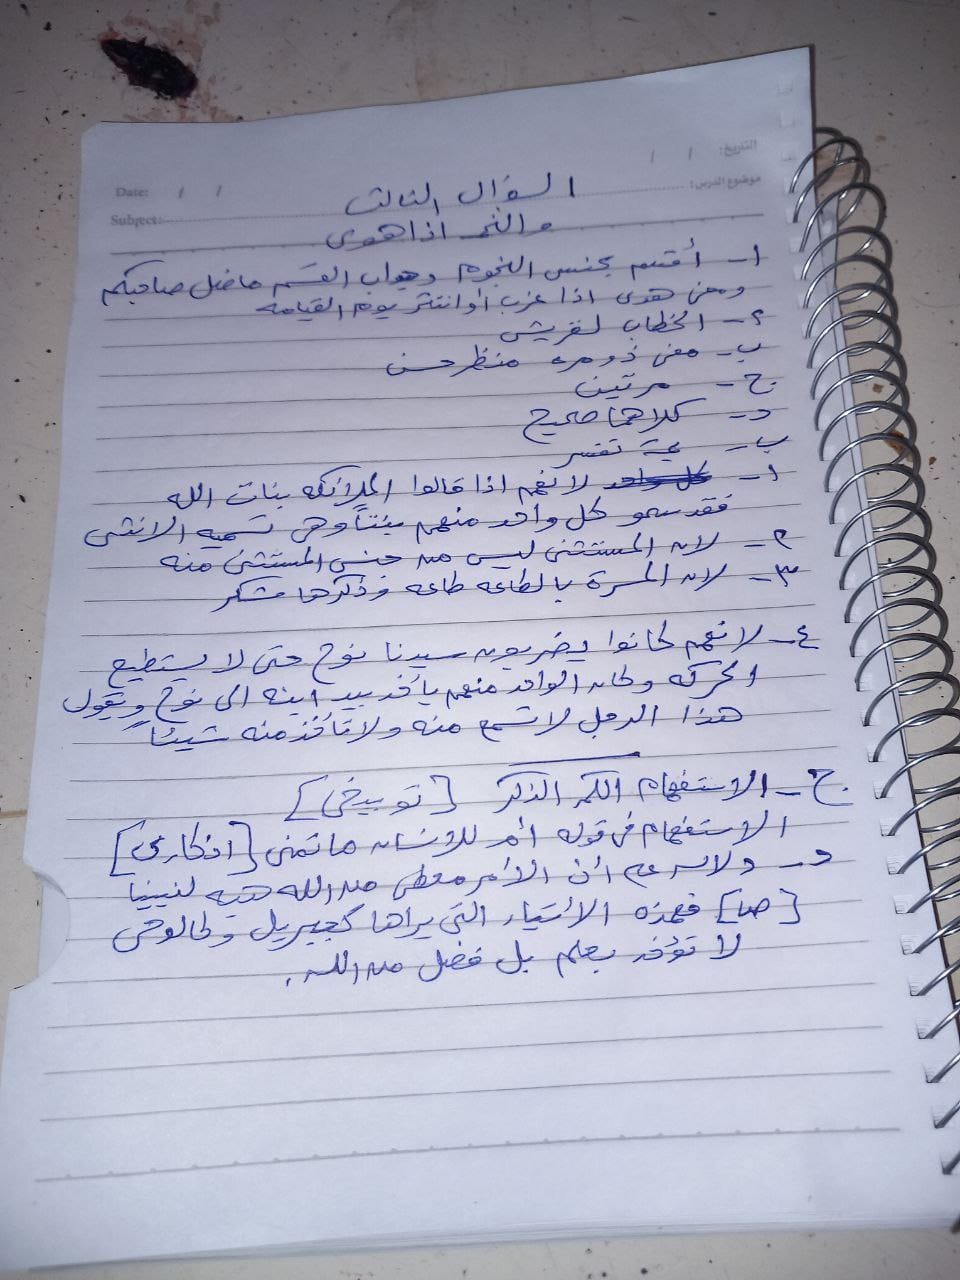 التاريخ: / /
Date: / /
موضوع الدرس:
Subject:
السؤال الثالث
والنجم اذا هوى
١- أقسم بجنس النجوم وجواب القسم ماضل صاحبكم
ومعنى هوى اذا غرب أو انتثر يوم القيامه
٢- الخطاب لقريش
ب- معنى ذو مره منظر حسن
ج- مرتين
د- كلاهما صحيح
ب- تفسر
١- لانهم اذا قالوا الملائكه بنات الله
فقد سمو كل واحد منهم بنتاً وهي تسميه الانثى
٢- لان المستثنى ليس من جنس المستثنى منه
٣- لان المسرة بالطاعه طاعه وذكرها شكر
٤- لانهم كانوا يضربون سيدنا نوح حتى لا يستطيع
الحركه وكان الواحد منهم يأخذ بيد ابنه الى نوح ويقول
هذا الرجل لا تسمع منه ولا تأخذ منه شيئاً
ج- الاستفهام الكم الذكر [توبيخي]
الاستفهام في قوله أم للانسان ما تمنى [انكاري]
د- ولا أن الأمر معطى من الله هبه لنبينا
[ص] فهذه الأشياء التي يراها كجبريل وكالوحي
لا تؤخذ بعلم بل فضل من الله.